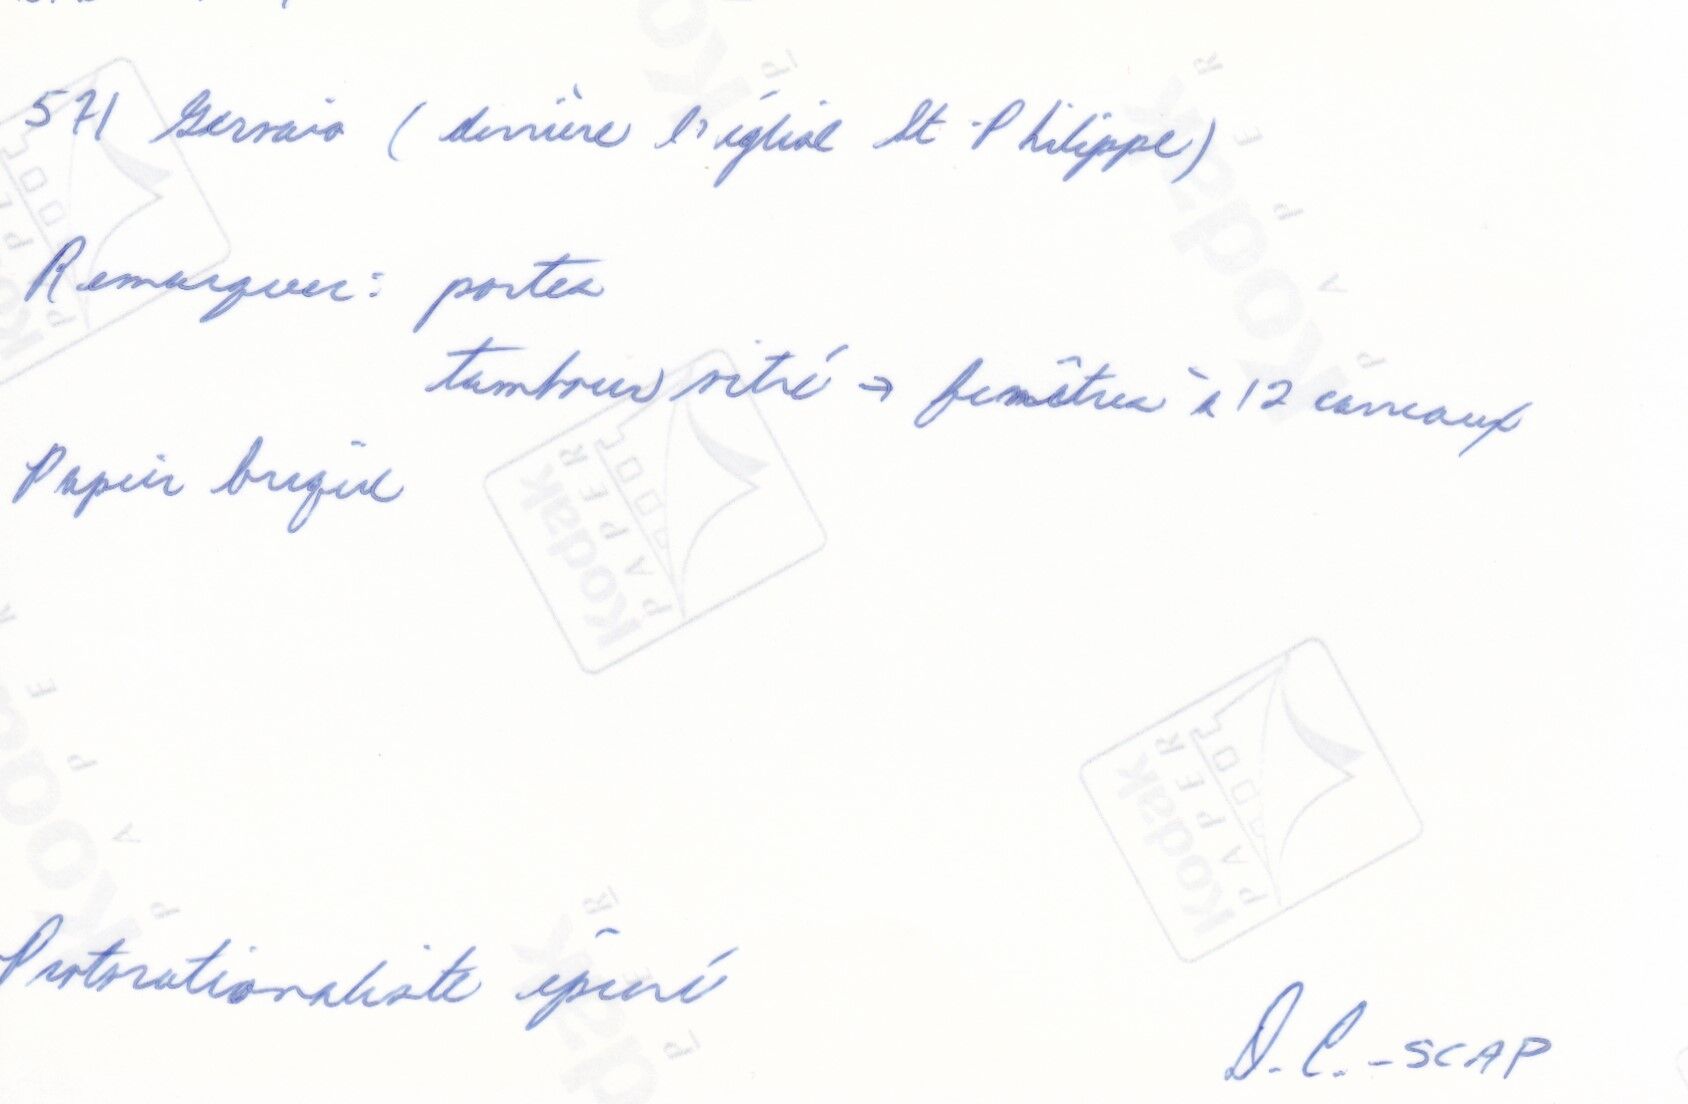 571 Gervais (derrière l'église St-Philippe)
Remarquer: portes
tambour vitré → fenêtres à 12 carreaux
Papier brique
Protorationaliste épuré
D.C. - SCAP
Kodak
PAPER
Kodak
PAPER
Kodak
PAPER